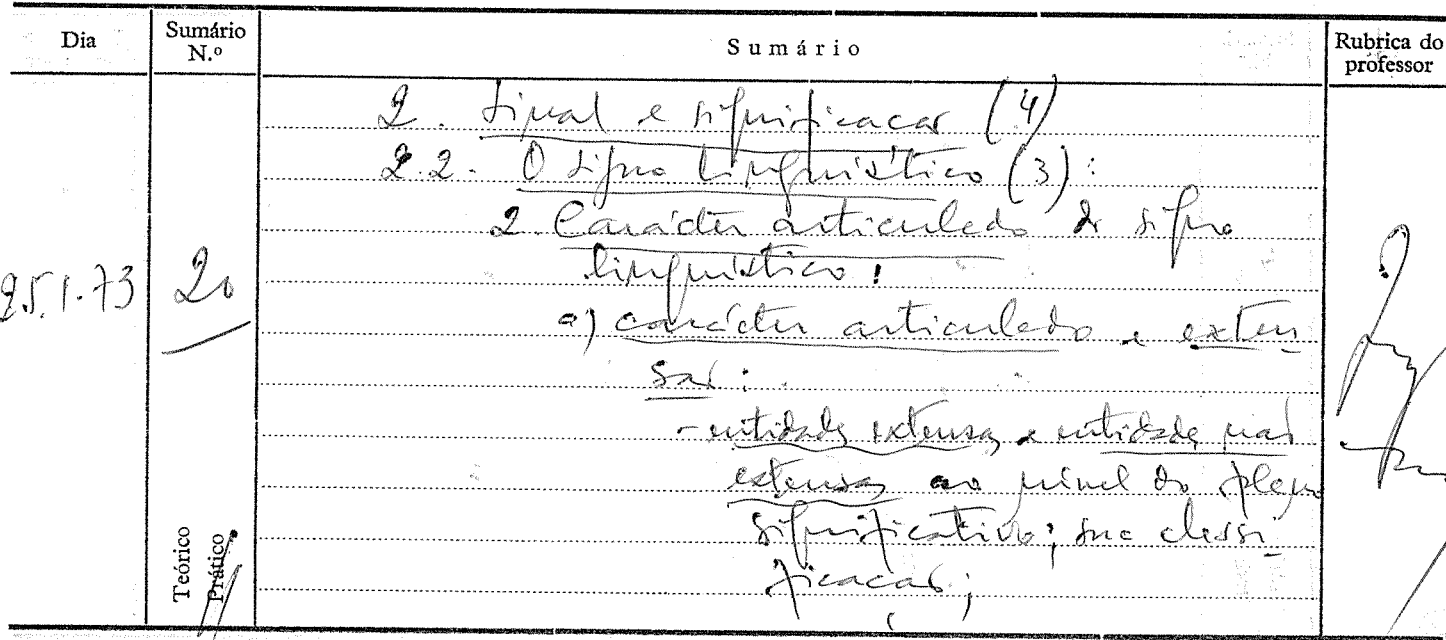 Dia
Sumário
N.º
Sumário
Rubrica do
professor
2. Sinal e significação (4)
2.2. O signo linguístico (3):
2. Carácter articulado do signo
linguístico:
a) carácter articulado e exten-
são:
25.1.73
20
- entidades extensas e entidades não
extensas ao nível do plano
significativo; sua classi-
ficação;
Teórico
Prático